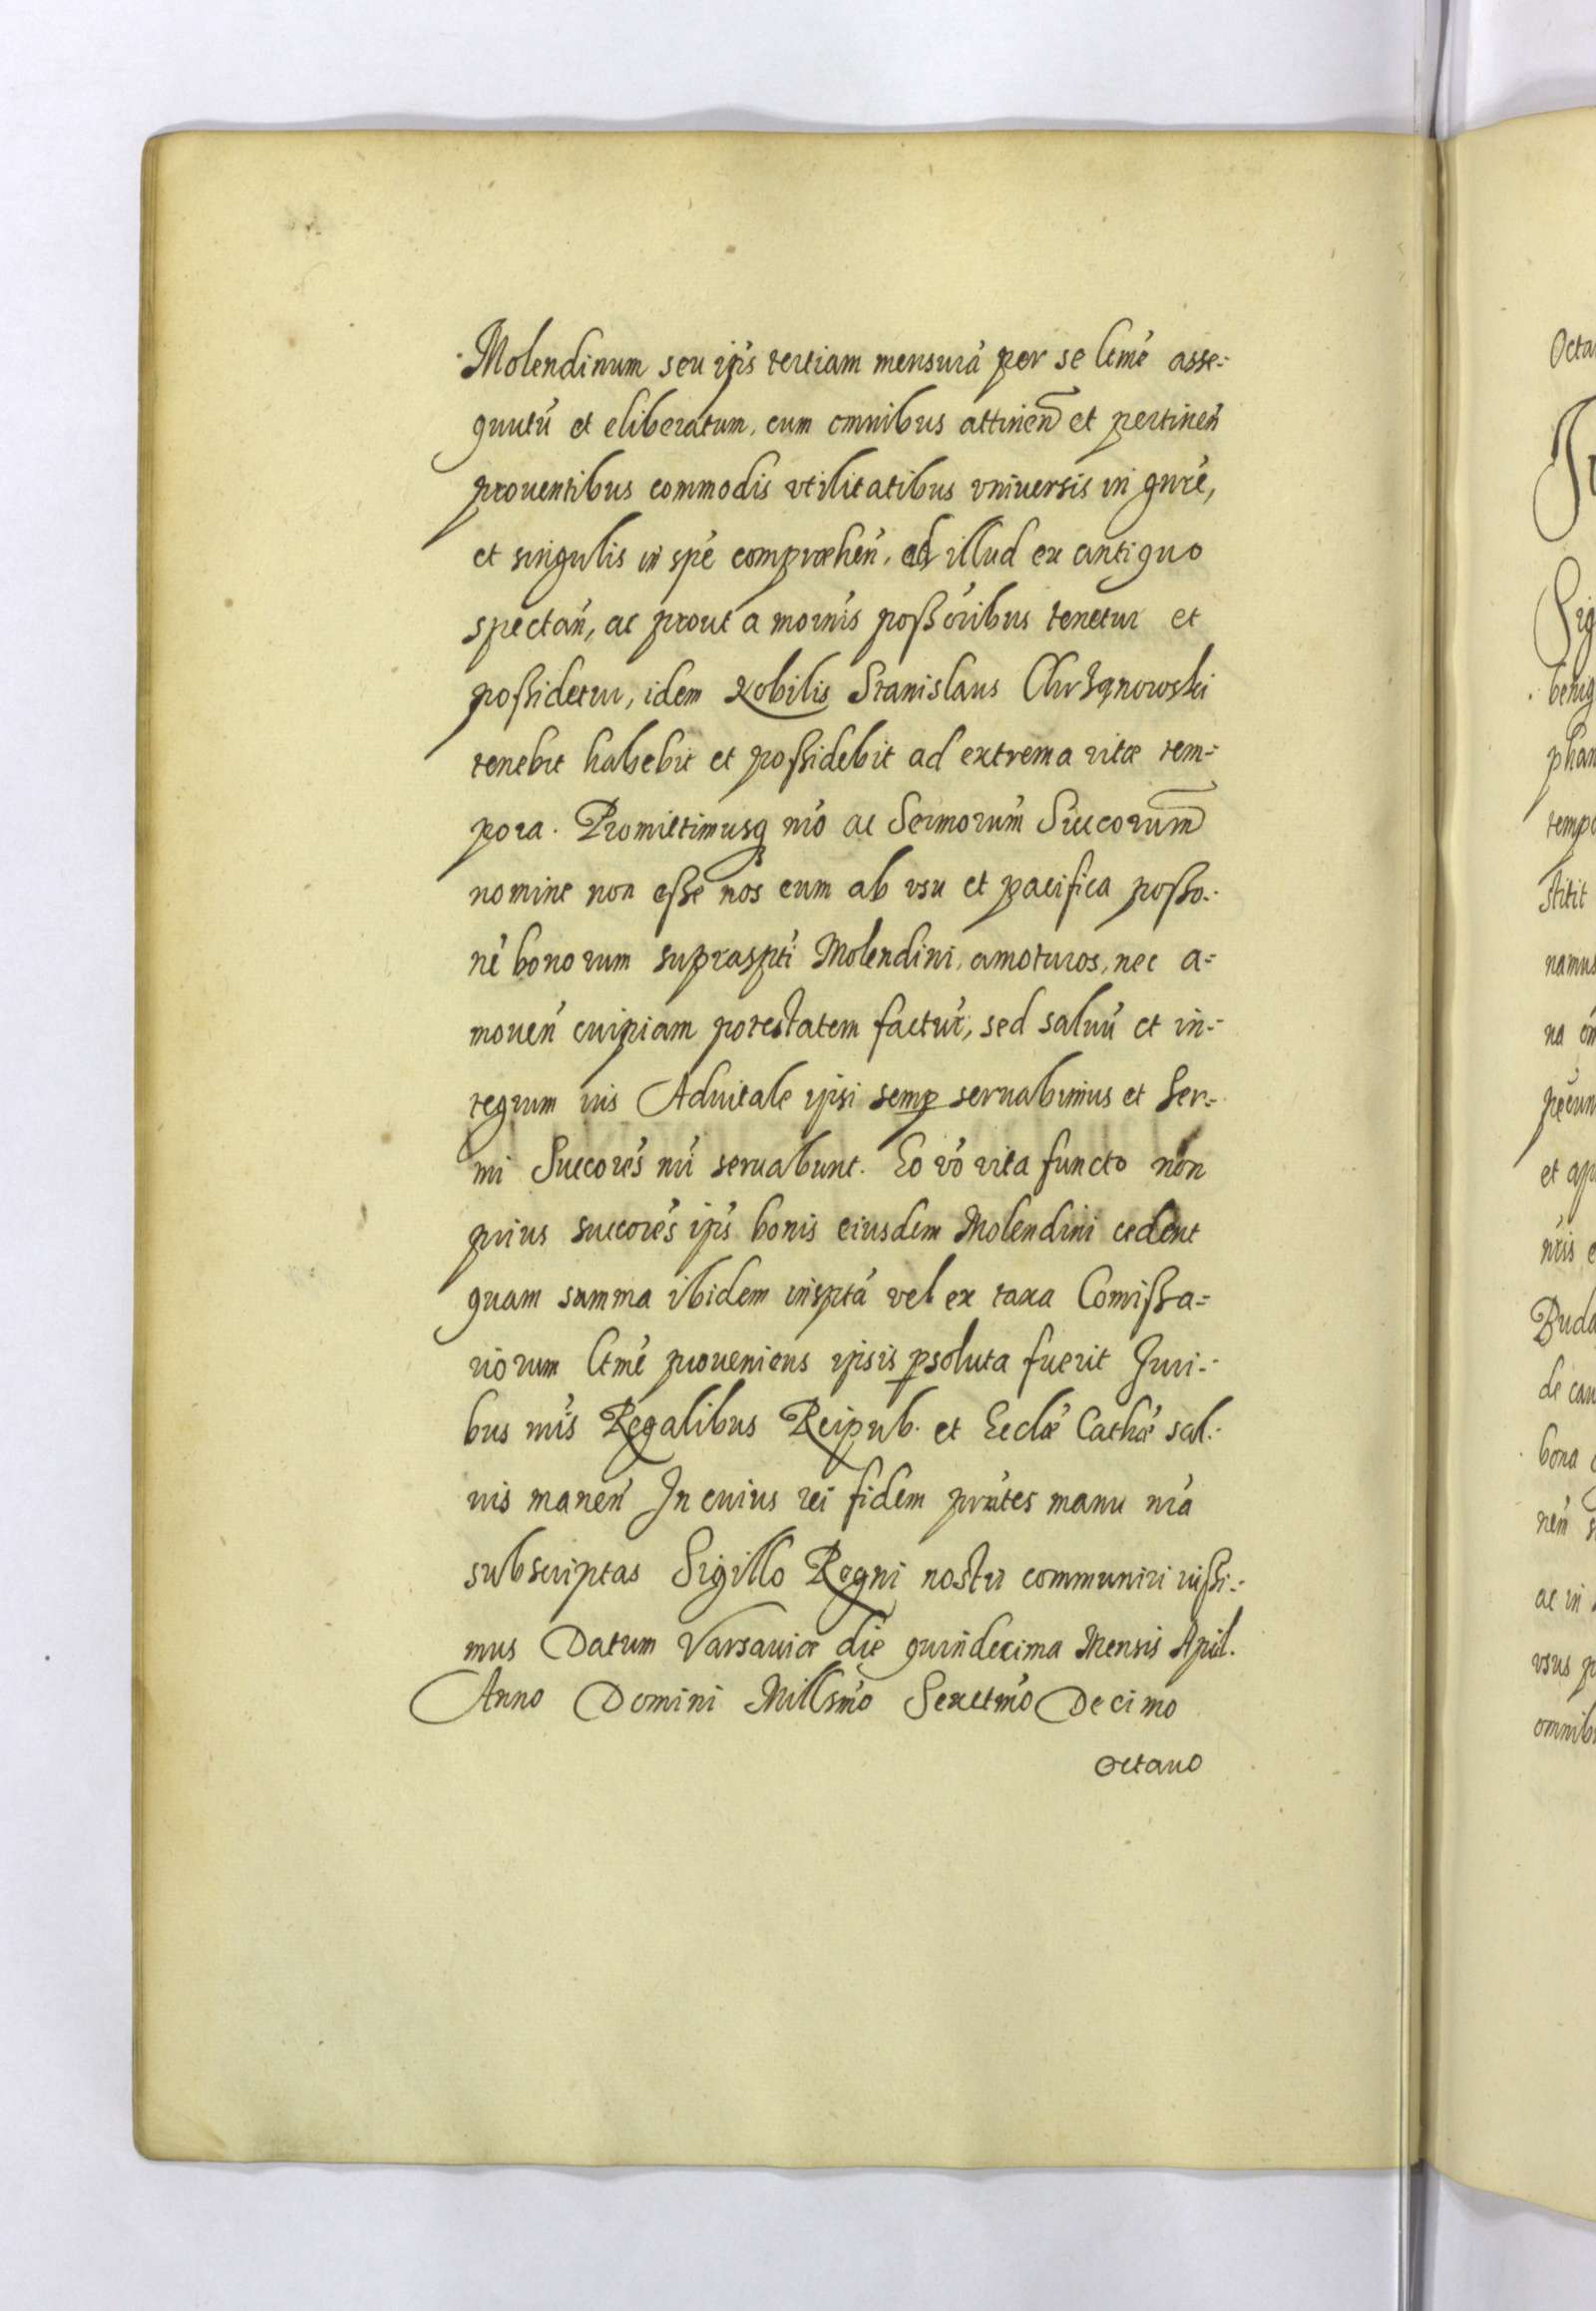 Molendinum seu ip̃s tertiam mensurã per se ltmẽ asse-
quutũ et eliberatum, cum omnibus attinen̄ et pertineñ
prouentibus commodis vtilitatibus vniuersis in gnrẽ,
et singulis in spẽ compræheñ, ad illud ex antiquo
spectañ, ac prout a mornis poßõribus tenetur et
poßidetur, idem Nobilis Stanislaus Chrząnowski
tenebit habebit et poßidebit ad extrema vitæ tem-
pora. Promittimusq nrõ ac Sermorum̃ Succorum̃
nomine non eße nos eum ab vsu et pacifica poßo-
nẽ bonorum supraspti Molendini, amoturos, nec a-
moueñ cuipiam potestatem factur̃, sed saluũ et in-
tegrum ius Aduitale ipsi semp seruabimus et Ser-
mi Succorẽs nri seruabunt. Eo võ vita functo non
prius succorẽs ip̃s bonis eiusdem Molendini cedent
quam summa ibidem insptã vel ex taxa Comißa-
riorum ltmẽ proueniens ipsis psoluta fuerit Juri-
bus nris Regalibus Reipub. et Ecclæ Cathæ sal-
uis maneñ In cuius rei fidem prñtes manu nrã
subscriptas Sigillo Regni nostri communiri iußi-
mus Datum Varsauiæ die quindecima Mensis April.
Anno Domini Millsmõ Sexctmõ Decimo
Octauo
Octa
Sig
benig
phan
temp
stitit
namus
et
Buda
bona
ac in
vsus
omnib